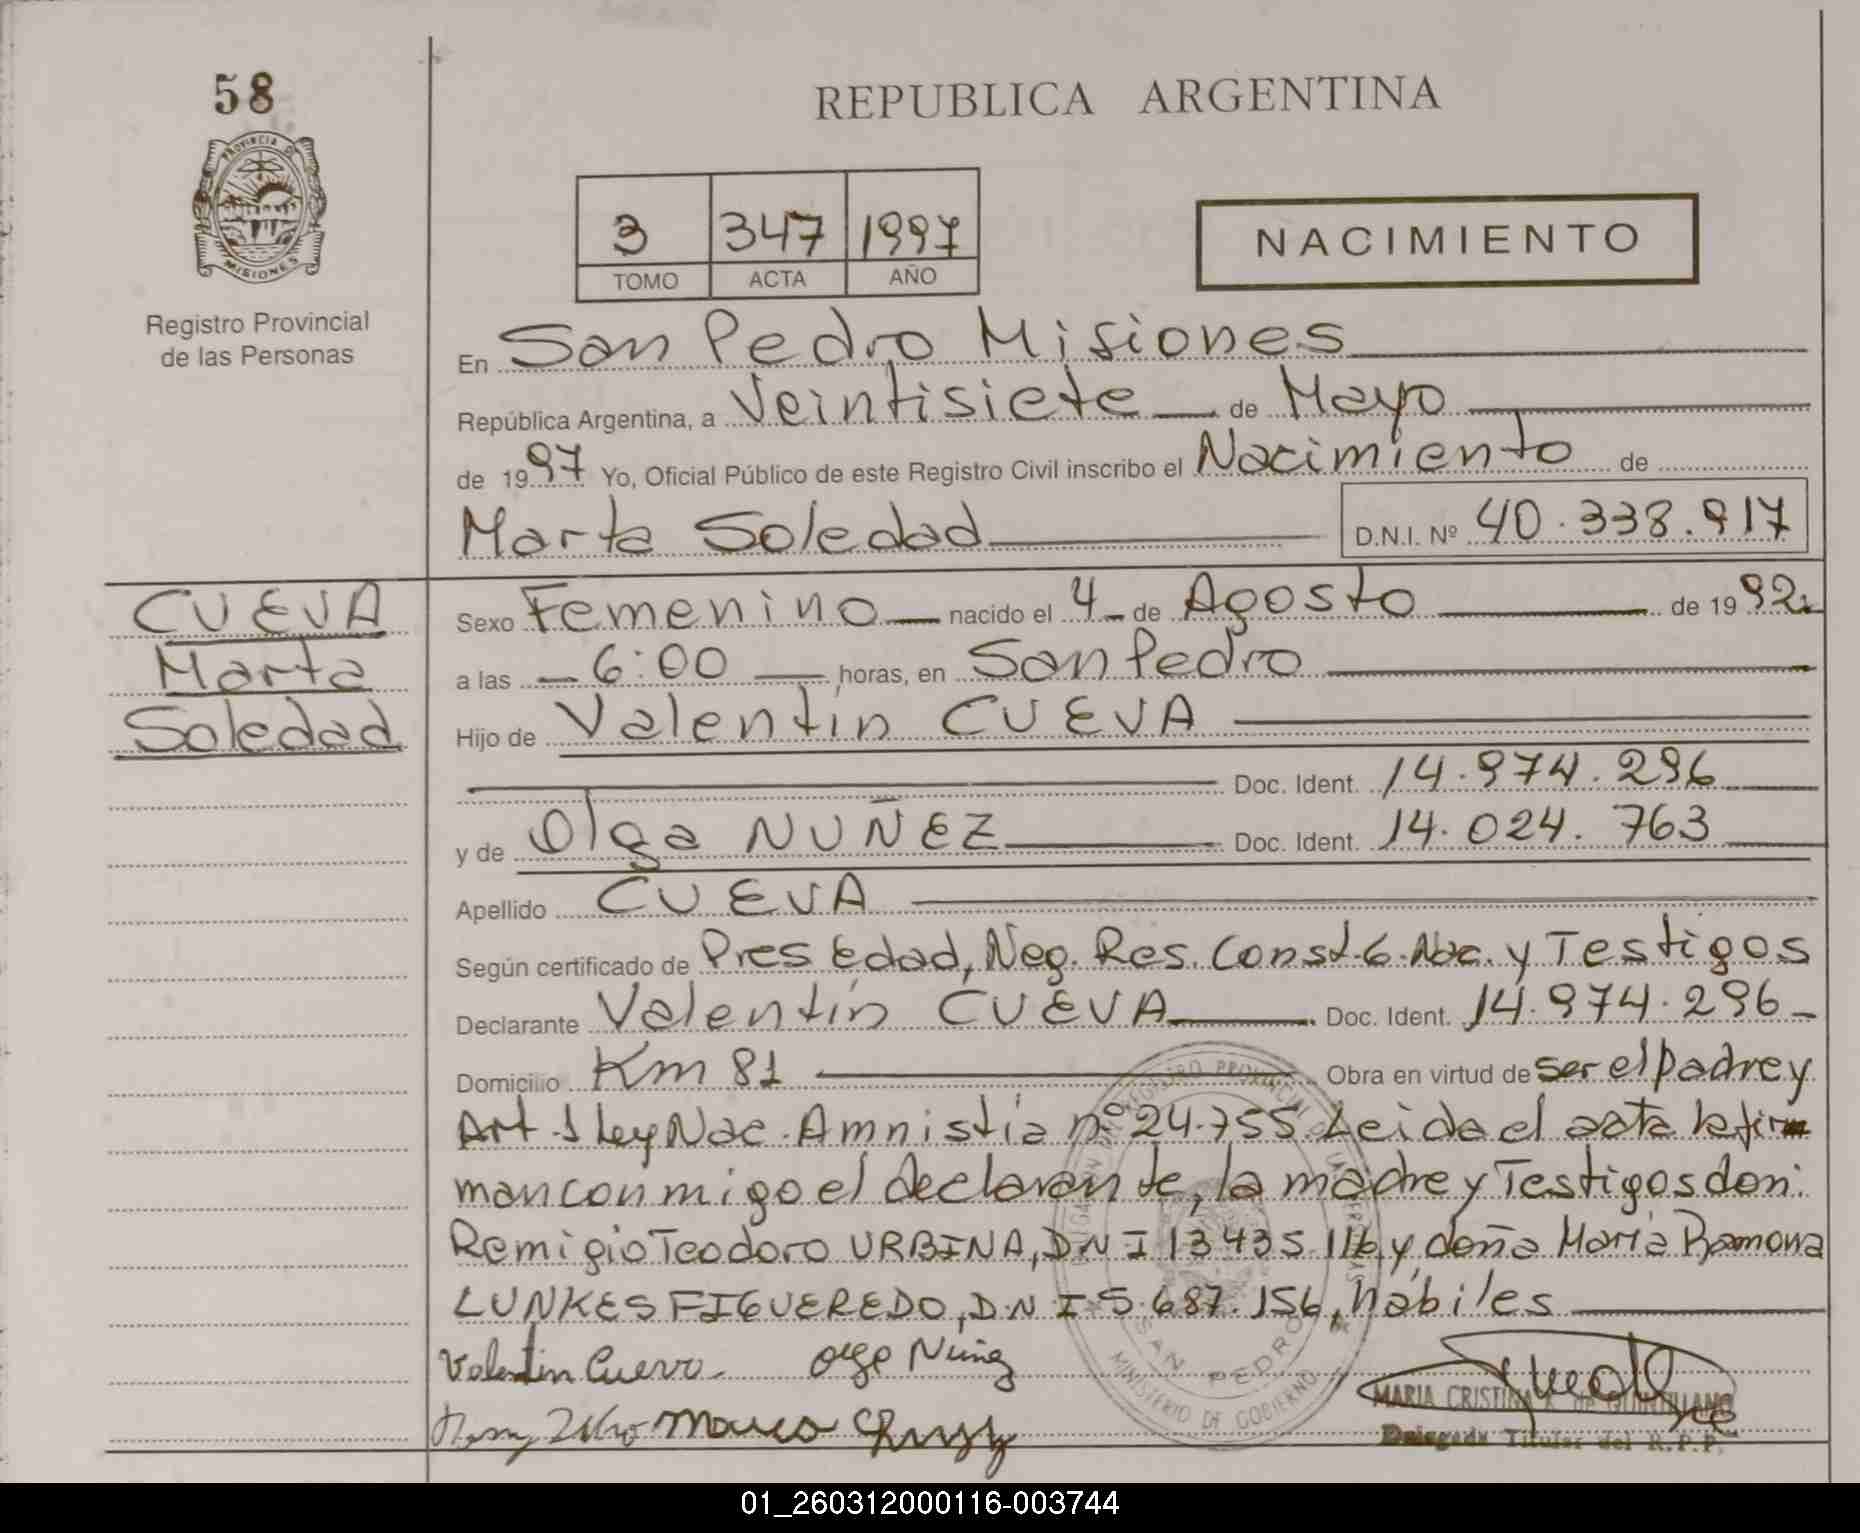 58
REPUBLICA ARGENTINA
PROVINCIA DE
MISIONES
Registro Provincial
de las Personas
3 347 1997
TOMO ACTA AÑO
NACIMIENTO
En San Pedro Misiones
República Argentina, a Veintisiete de Mayo
de 1997 Yo, Oficial Público de este Registro Civil inscribo el Nacimiento de
Marta Soledad D.N.I. Nº 40.338.917
CUEVA
Marta
Soledad
Sexo Femenino nacido el 4 de Agosto de 1992
a las 6:00 horas, en San Pedro
Hijo de Valentín CUEVA
Doc. Ident. 14.974.296
y de Olga NUÑEZ Doc. Ident. 14.024.763
Apellido CUEVA
Según certificado de Pres Edad, Neg. Res. Const. 6. Nac. y Testigos
Declarante Valentín CUEVA Doc. Ident. 14.974.296
Domicilio Km 81 Obra en virtud de ser el padre y
Art. 1 Ley Nac. Amnistía nº 24.755. Leida el acta la fir
man conmigo el declarante, la madre y Testigos don:
Remigio Teodoro URBINA, D N I 13.435.116 y doña María Ramona
LUNKES FIGUEREDO, D.N I 5.687.156, hábiles
Valentin Cueva Olga Nuñez
MARIA CRISTINA
Delegada Titular del R.P.P.
REGISTRO PROVINCIAL DE LAS PERSONAS
SAN PEDRO
MINISTERIO DE GOBIERNO
01_260312000116-003744